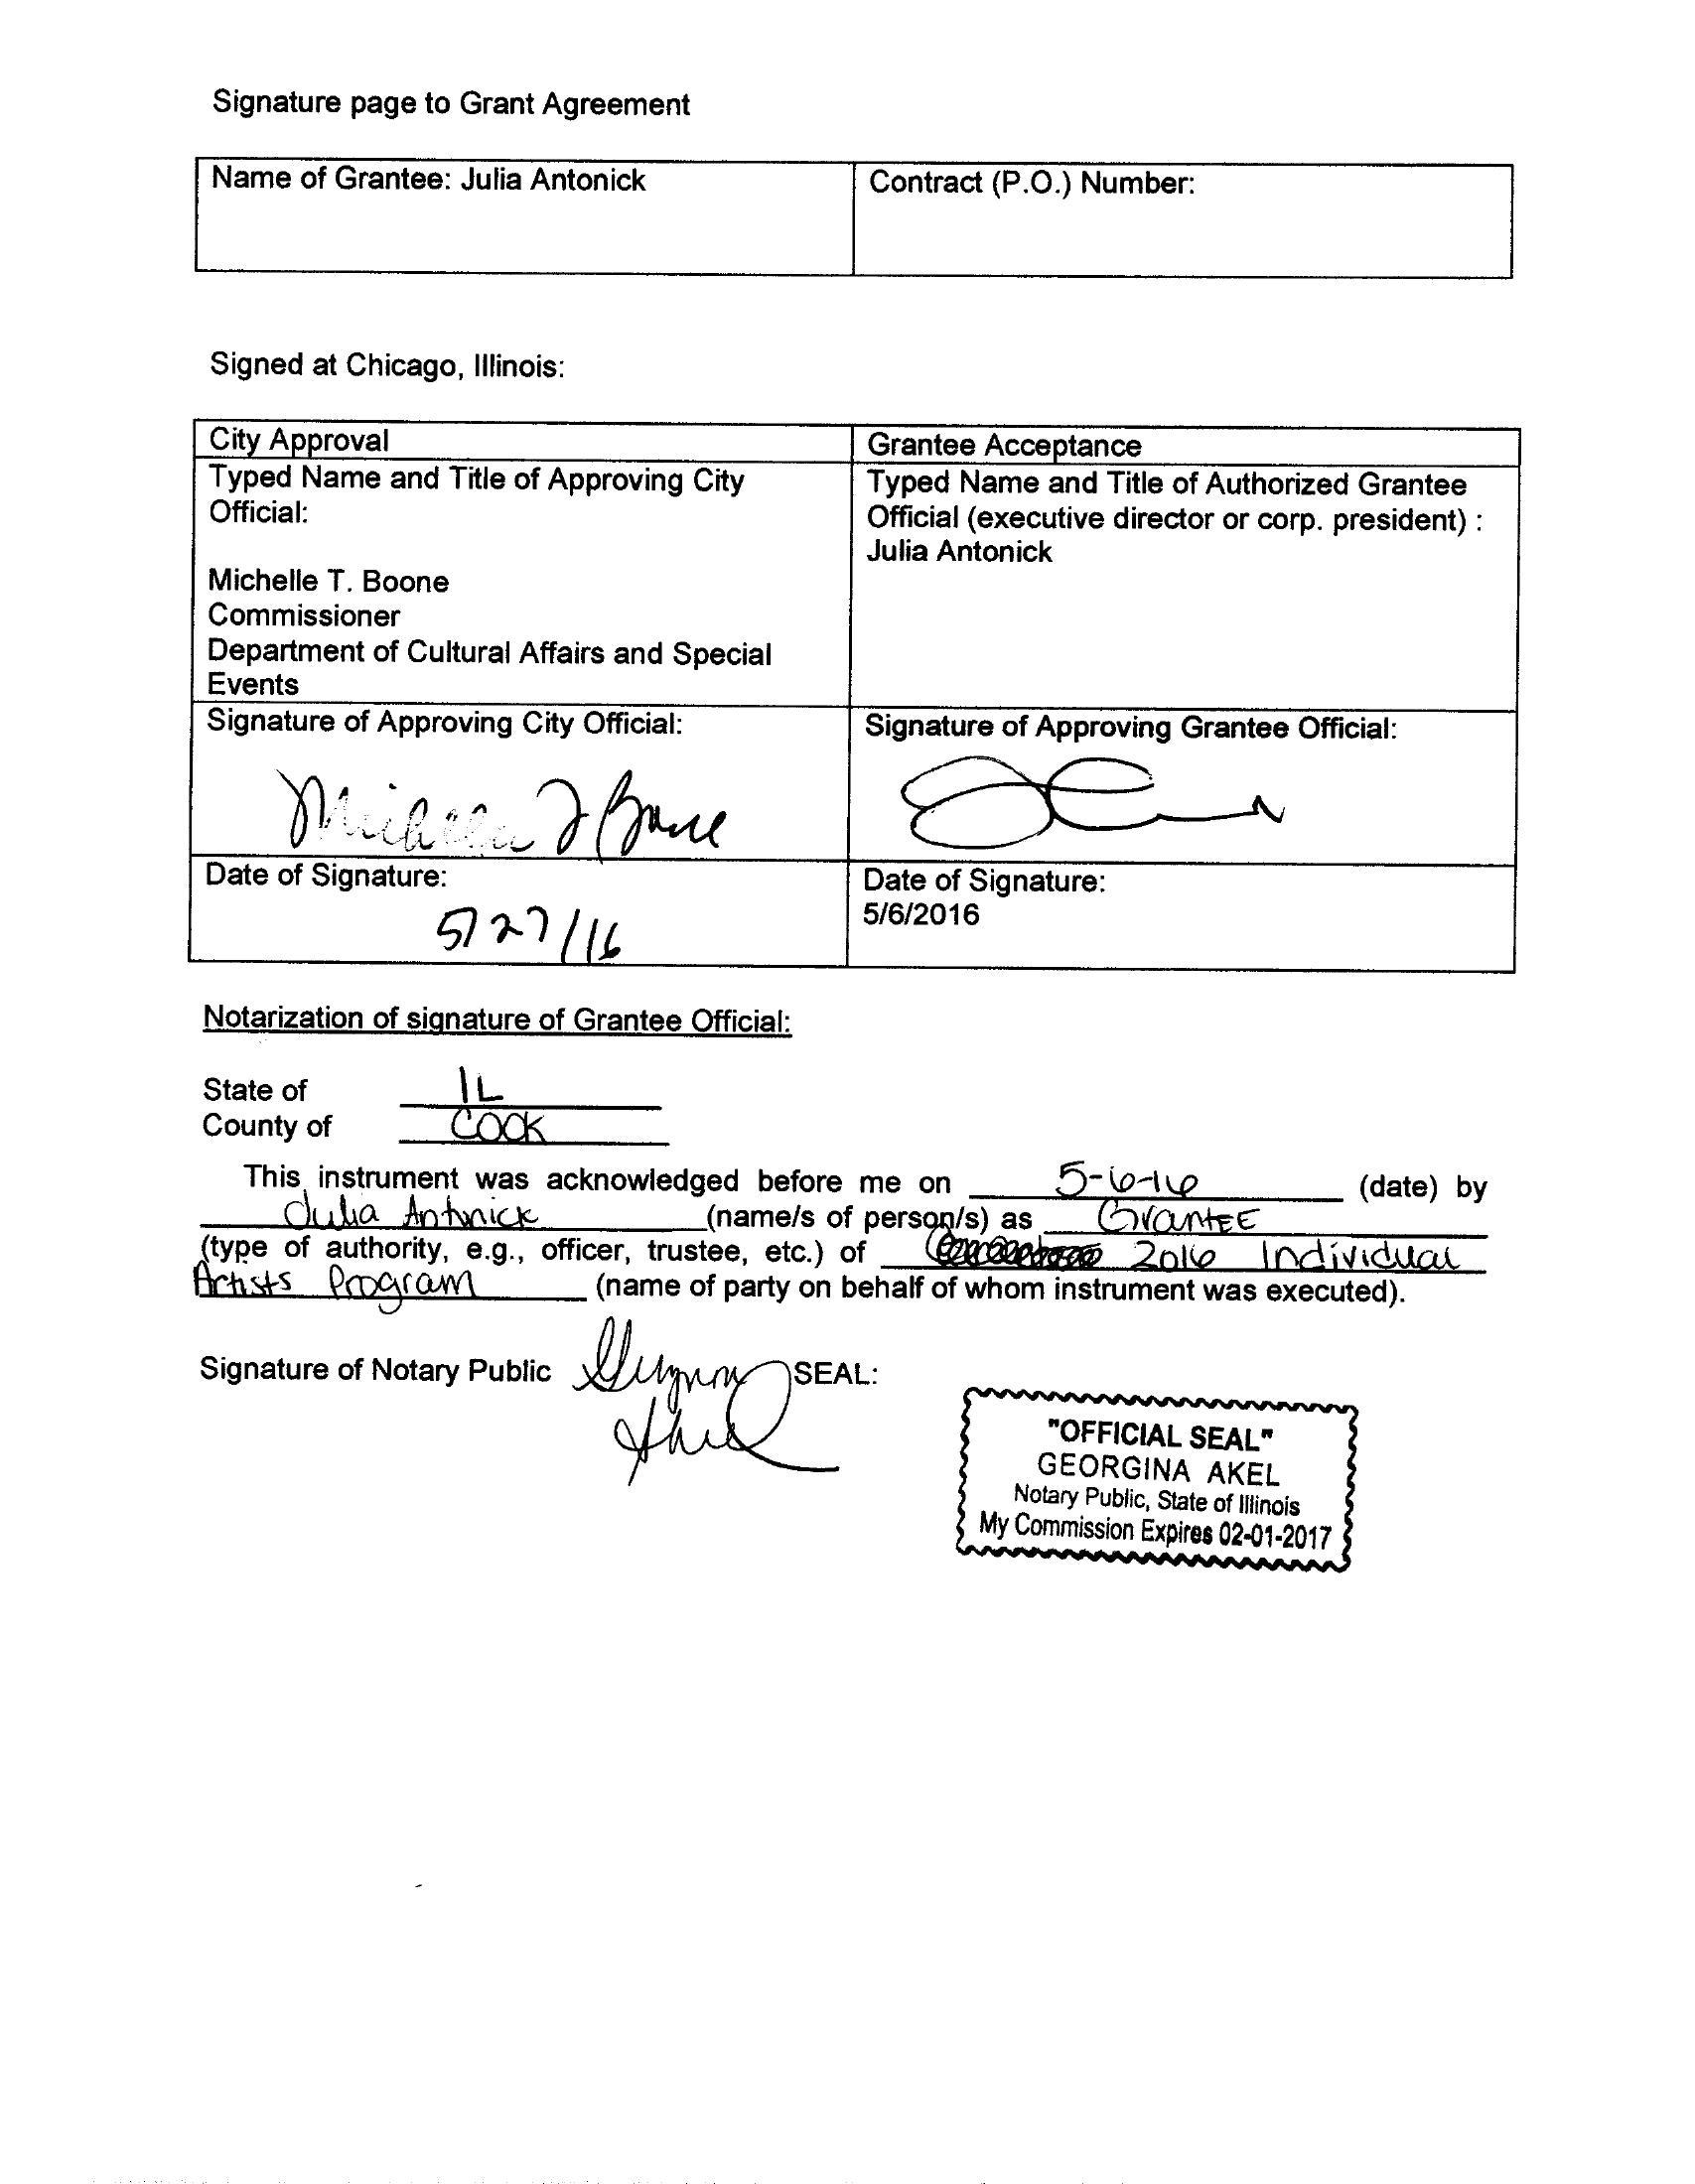 Signature page to Grant Agreement
Name of Grantee: Julia Antonick
Contract (P.O.) Number:
Signed at Chicago, Illinois:
City Approval
Grantee Acceptance
Typed Name and Title of Approving City
Official:
Michelle T. Boone
Commissioner
Department of Cultural Affairs and Special
Events
Typed Name and Title of Authorized Grantee
Official (executive director or corp. president) :
Julia Antonick
Signature of Approving City Official:
Michelle T Boone
Signature of Approving Grantee Official:
Date of Signature:
5/27/16
Date of Signature:
5/6/2016
Notarization of signature of Grantee Official:
State of IL
County of COOK
This instrument was acknowledged before me on 5-6-16 (date) by
Julia Antonick (name/s of person/s) as GrantEE
(type of authority, e.g., officer, trustee, etc.) of 2016 Individual
Artists Program (name of party on behalf of whom instrument was executed).
Signature of Notary Public SEAL:
"OFFICIAL SEAL"
GEORGINA AKEL
Notary Public, State of Illinois
My Commission Expires 02-01-2017